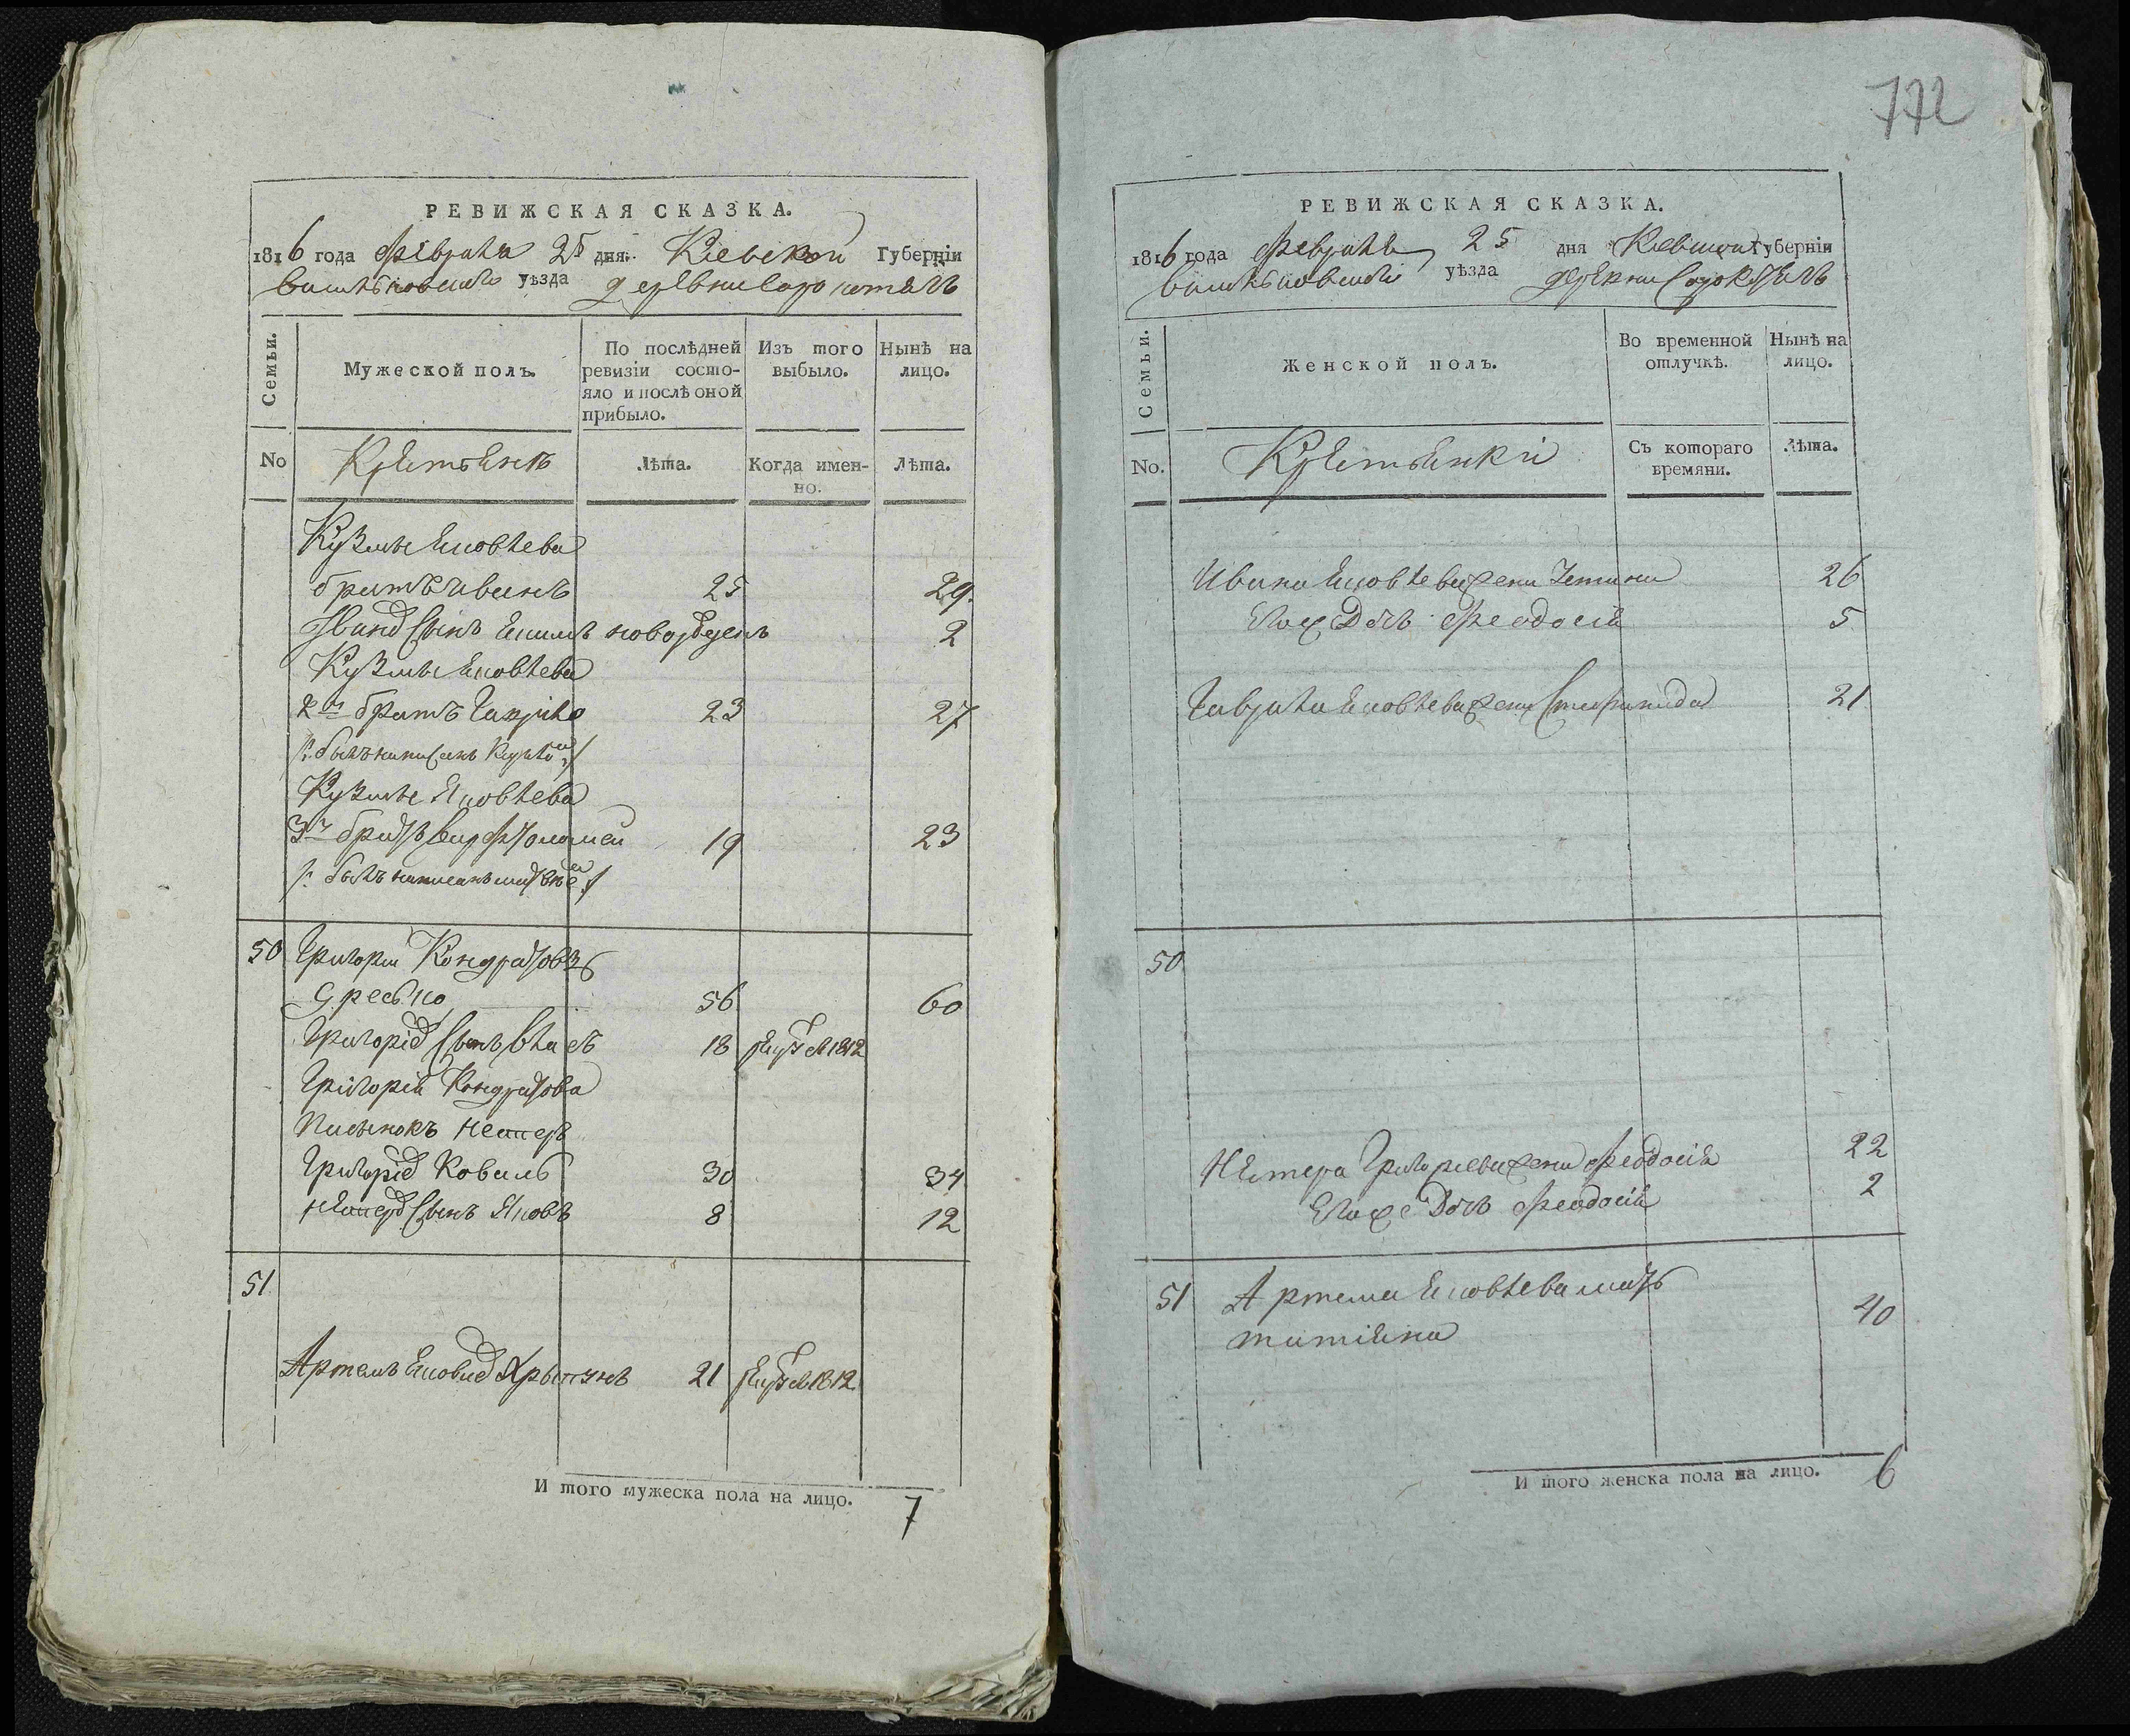 772
РЕВИЖСКАЯ СКАЗКА.
1816 года Февраля 25 дня. Киевской Губернїи
Василковского уѣзда деревни Сорокотягъ
Семьи.
Мужеской полъ.
По послѣдней ревизїи состо-
яло и послѣ оной
прибыло.
Изъ того
выбыло.
Нынѣ на
лицо.
No
Крестьянъ
Лѣта.
Когда имен-
но.
Лѣта.
Кузмы Яковлева
братъ Иванъ 25 29.
Ивана сынъ Якимъ новорожденъ 2
Кузмы Яковлева
2й братъ Гаврило 23 27
/: былъ написанъ :/
Кузмы Яковлева
3й братъ Варфоломей 19 23
/: былъ написанъ :/
50 Григорий Кондратовъ
56 60
Григорїя сынъ 18 1812
Григорїя Кондратова
Пасынокъ Нестеръ
Григорїя Коваль 30 34
Нестера сынъ Яковъ 8 12
51
Артемъ 21 1812
И того мужеска пола на лицо. 7
РЕВИЖСКАЯ СКАЗКА.
1816 года Февраля 25 дня Киевской Губернїи
Василковского уѣзда деревни Сорокотягъ
Семьи.
Женской полъ.
Во временной
отлучкѣ.
Нынѣ на
лицо.
No.
Крестьянки
Съ котораго
времяни.
Лѣта.
Ивана Яковлева жена 26
Его же Дочь Феодосїя 5
Гаврила Яковлева жена 21
50
Нестера Григорьева жена Феодосїя 22
Его же Дочь Феодосїя 2
51 Артема Яковлева мать
татїяна 40
И того женска пола на лицо. 6